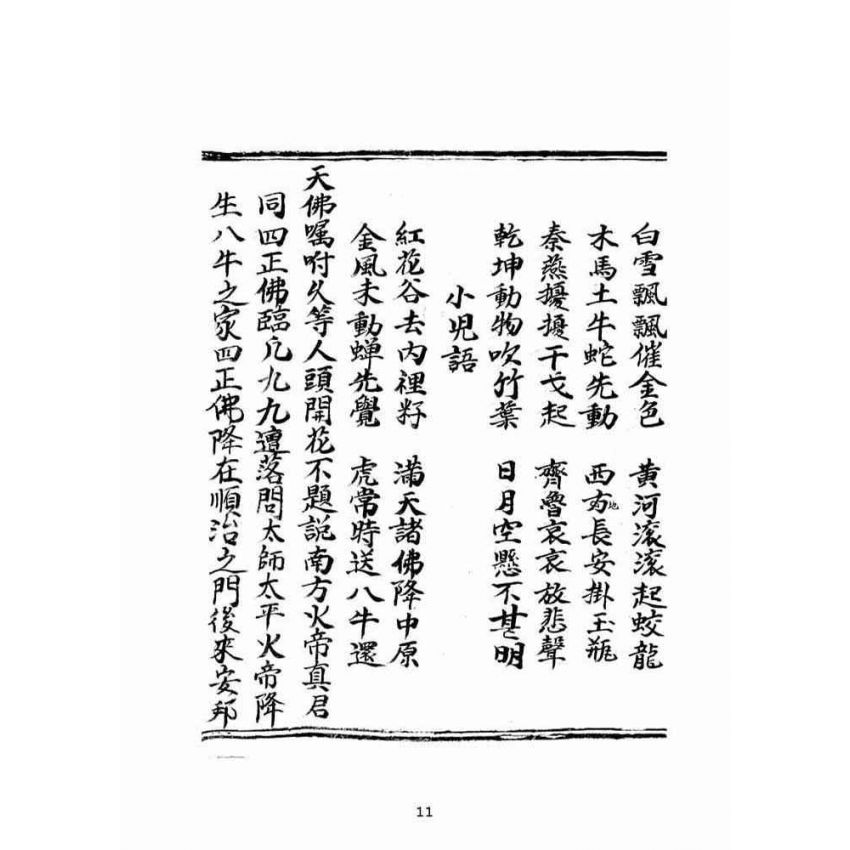 白雪飄飄催金色　黄河滚滚起蛟龍
木馬土牛蛇先動　西方地長安掛玉瓶
秦燕擾擾干戈起　齊魯哀哀放悲聲
乾坤動物吹竹葉　日月空懸不甚明
小児語
紅花谷去內裡籽　滿天諸佛降中原
金風未動蝉先覺　虎常時送八牛還
天佛嘱咐乆等人頭開花不題説南方火帝真君
同四正佛臨凢九九遭落問太師太平火帝降
生八牛之家四正佛降在順治之門後來安邦
11